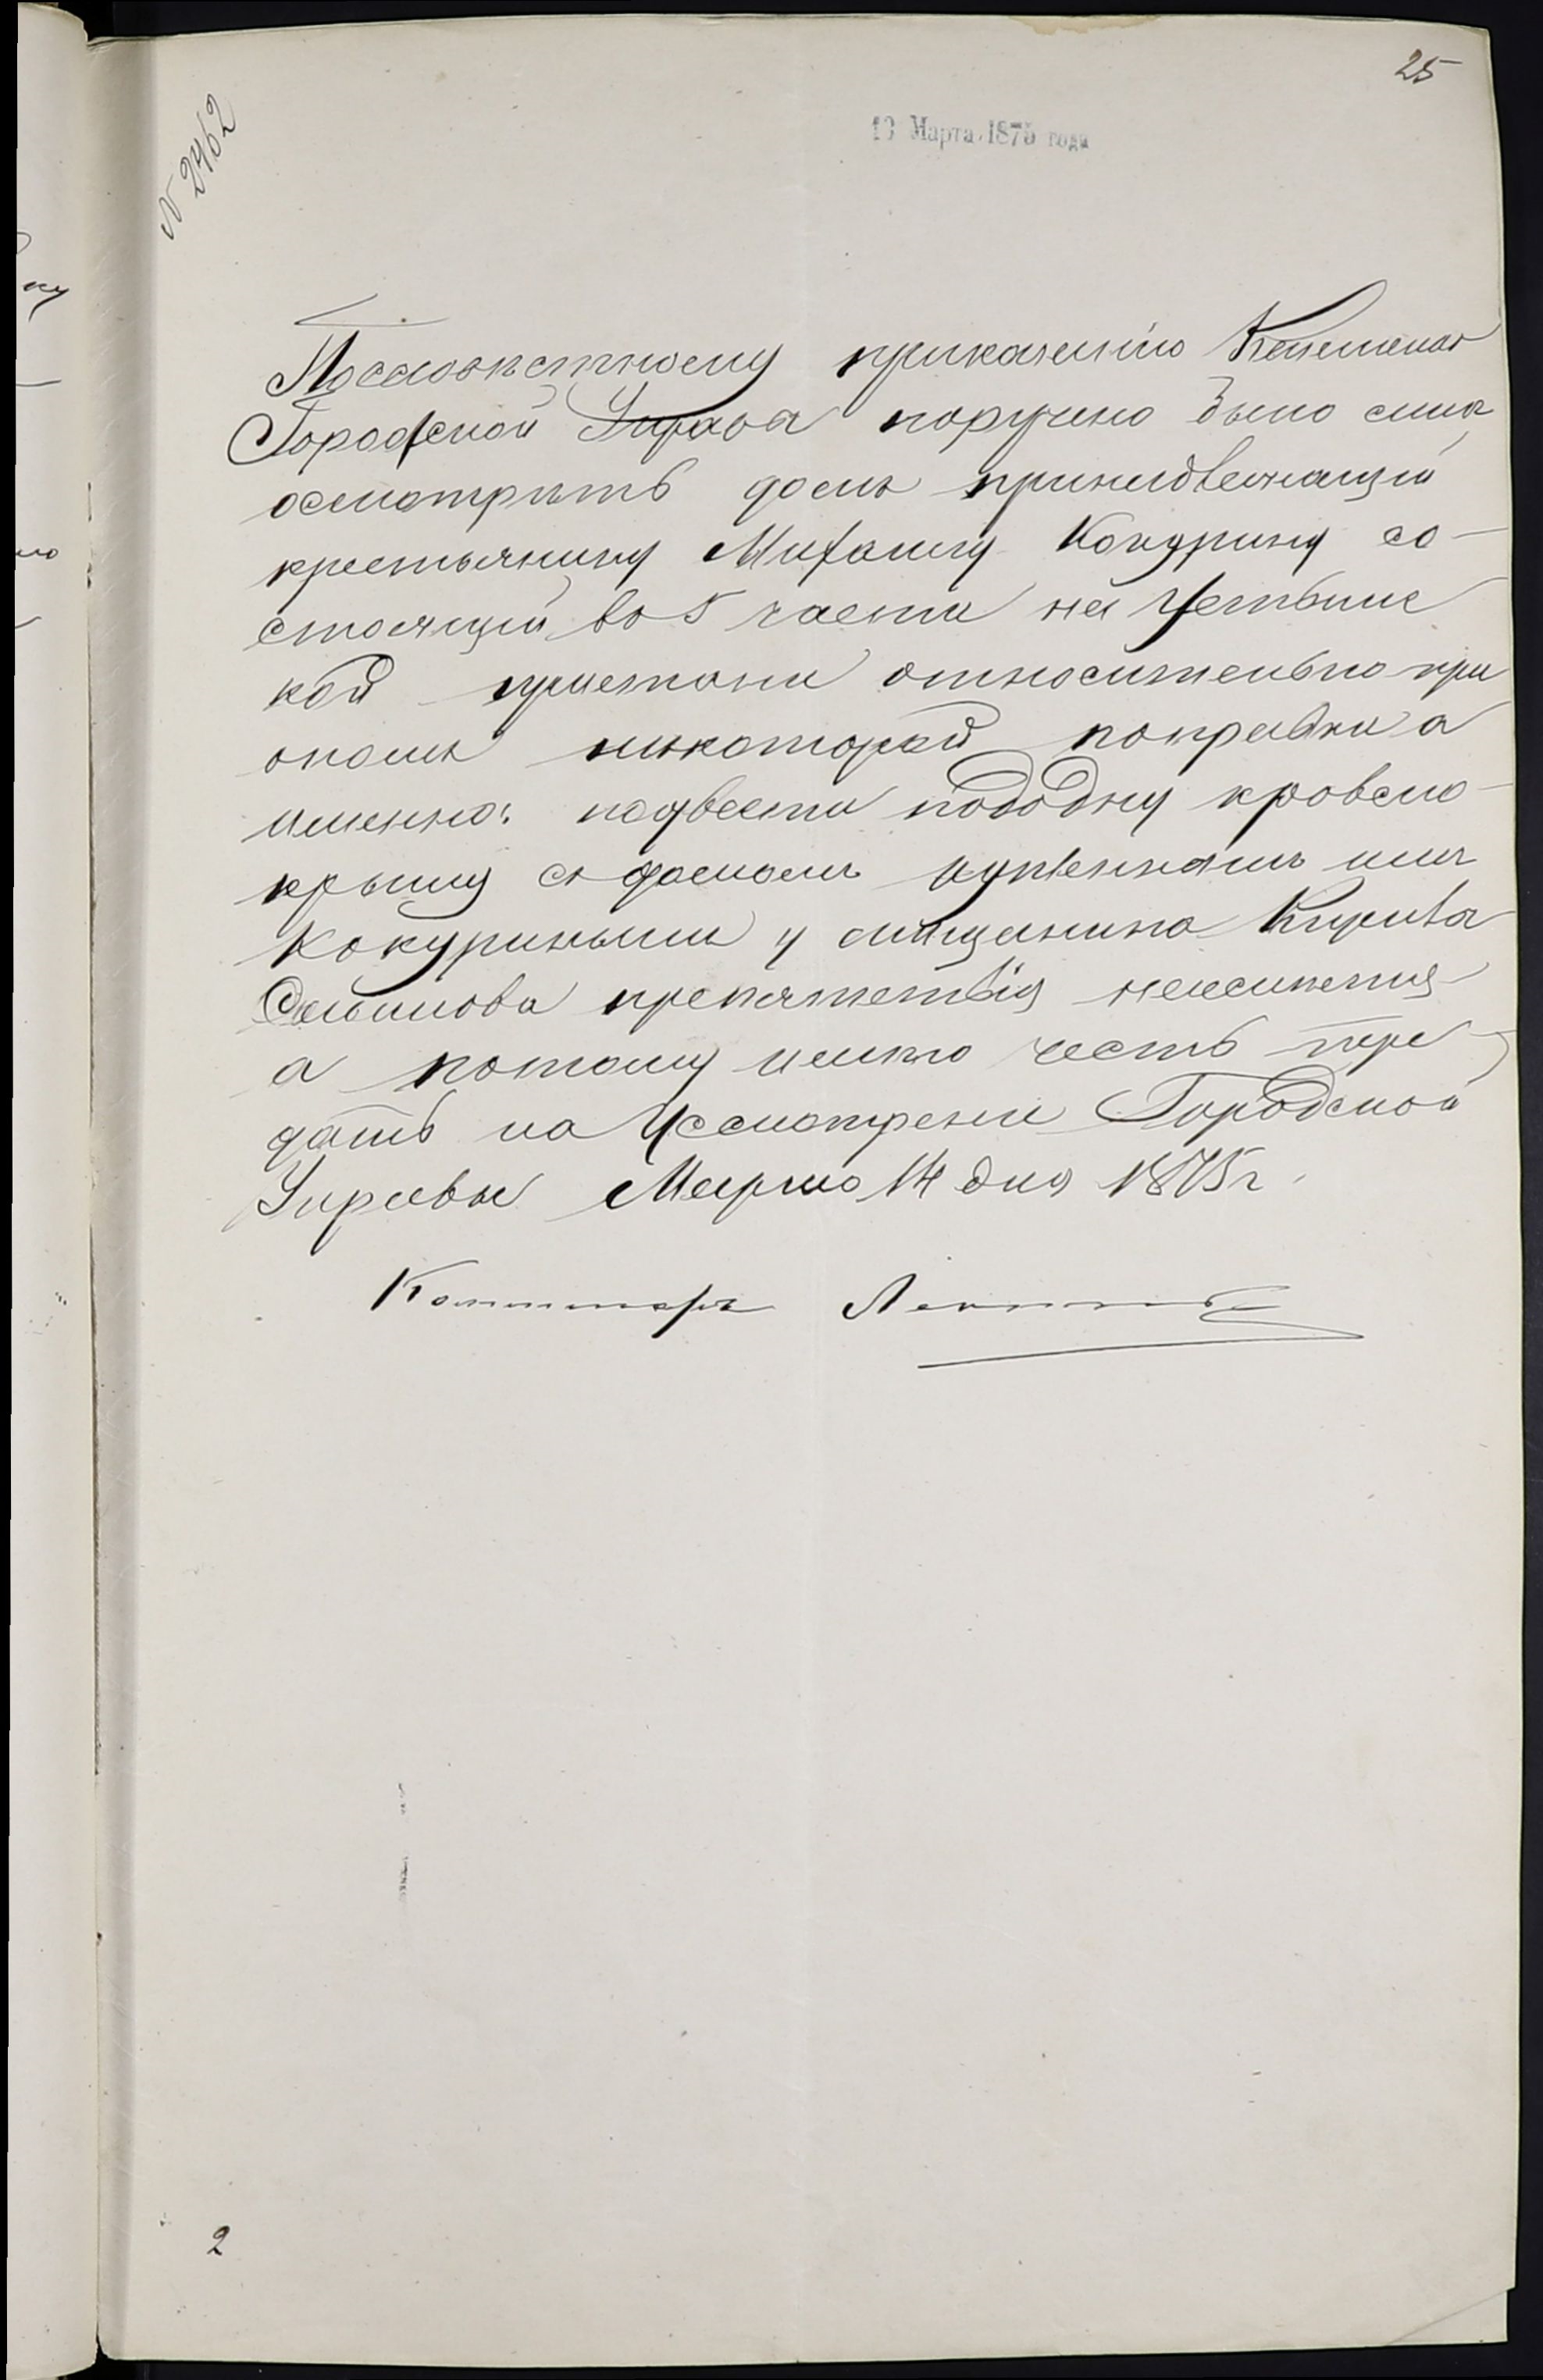 25
N 2462
13 Марта 1875 года
Пословѣстному приказанію Членовъ
Городской Управа поручено было мнѣ
осмотрѣть домъ принадлежащій
крестьянину Михаилу Кокурину со-
стоящій во 5 части на
кой пристани относительно при
ономъ нѣкоторой поправки а
именно: подвести подъодну кровельно
крышу съ домомъ купленнымъ имъ
Кокуринымъ у мѣщанина
препятствія неимѣется
а потому имѣю честь пере
дать на Усмотрение Городской
Управы Марта 14 дня 1875 г.
2